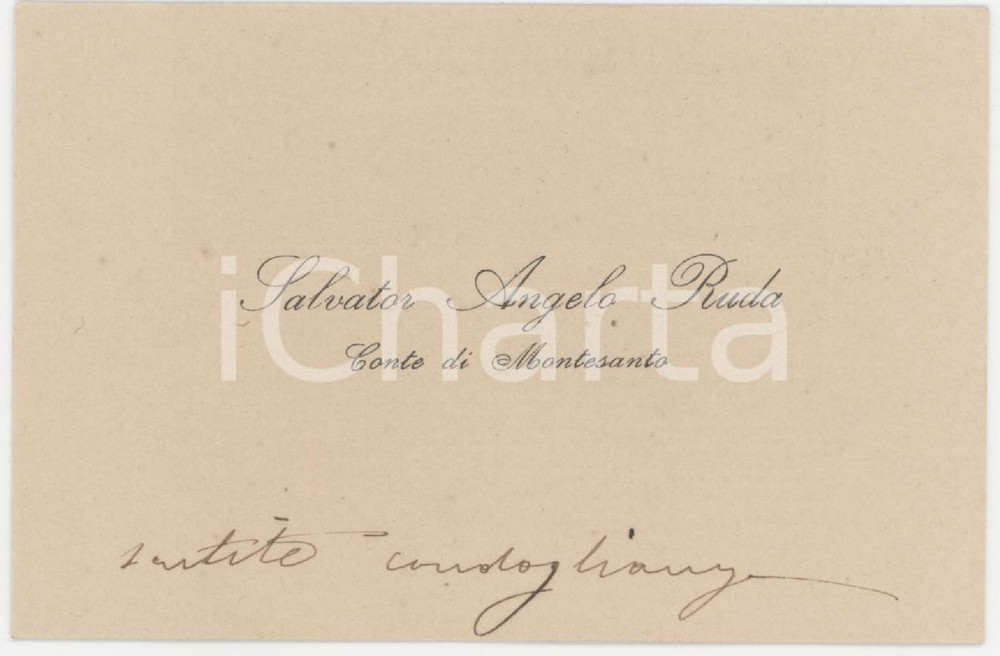 Salvator Angelo Ruda
Conte di Montesanto
iCharta
sentite condoglianze